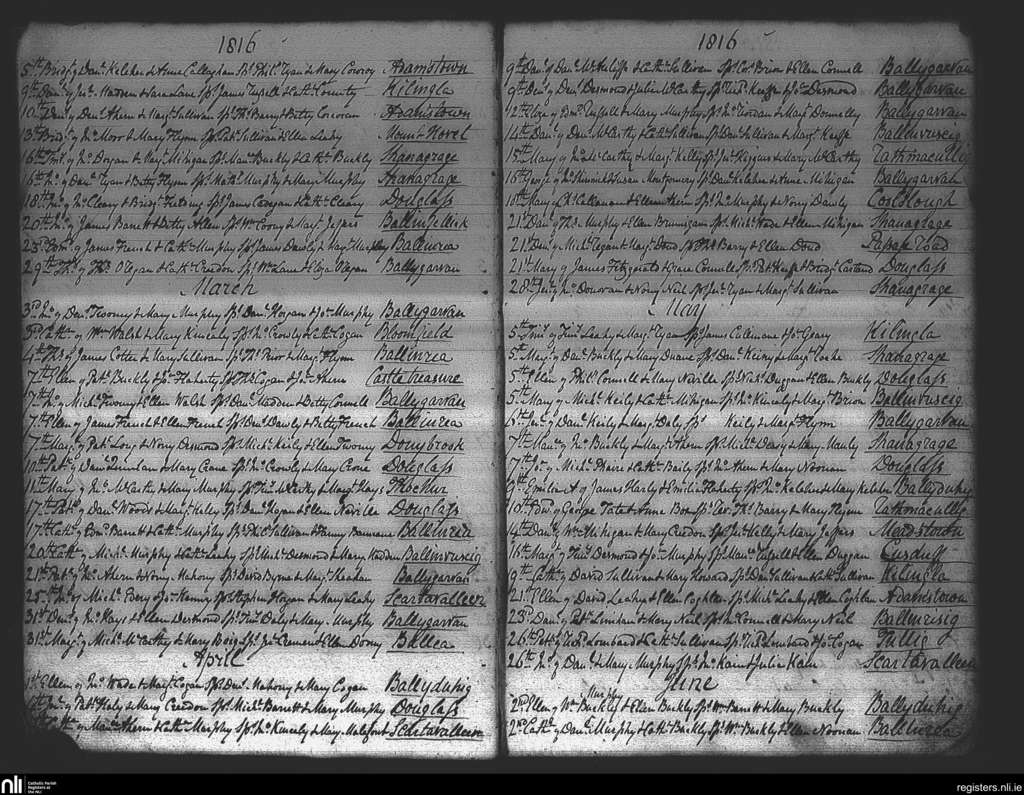 1816
5th Bridgt of Danl Keleher & Anne Callaghan Sps Phil. Ryan & Mary Conroy Adamstown
9th Danl of Jno Hadden & Sara Lane Sps James & Cath: Kilingla
10th Danl of Den: Ahern & Margt Sullivan Sps Ths Barry & Betty Corcoran Adamstown
13th Bridgt of Jno Moor & Mary Flynn Sps Patk Sullivan & Ellen Leahy Mount Hovel
16th of Jno & Margt Mihigan Sps Mau: Buckly & Cath: Buckly Shanagrage
16th Jno of Danl Ryan & Betty Flynn Sps Math: Murphy & Mary Murphy Shanagrage
18th Jno of Jno Cleary & Bridgt Sps James & Cath: Cleary Douglass
20th Jno of James Barrett & Betty Allen Sps Wm Coony & Margt Jeffers
25th of James French & Cath: Murphy Sps James Dawly & Margt Murphy Ballinrea
29th Ths of Ths O Regan & Cath: Creedon Sps Wm Lane & Eliza Regan Ballygarvan
March
3rd Jno of Den: Twomy & Mary Murphy Sps Danl Horgan & Jo: Murphy Ballygarvan
3rd Cath: of Wm Walsh & Mary Kinealy Sps Jno Crowly & Cath: Cogan Bloomfield
4th Ths of James Cotter & Mary Sullivan Sps Ths Prior & Margt Flynn Ballinrea
7th Ellen of Patk Buckly & Flaherty Sps Ths Cogan & Ahern Castletreasure
7th Jno of Michl Twomy & Ellen Walsh Sps Danl Madden & Betty Connell Ballygarvan
7th Ellen of James French & Ellen French Sps Den: Dawly & Betty French Ballinrea
7th Margt of Patk Long & Nory Desmond Sps Michl Keily & Ellen Twomy Dornybrook
10th Patk of Danl Quinlan & Mary Crone Sps Jno Crowly & Mary Crone Douglass
11th Mary of Jno McCarthy & Mary Murphy Sps McCarthy & Margt Hays
17th Patk of Danl Woods & Margt Haley Sps Danl Hogan & Ellen Neville Douglass
17th Cath: of Barrett & Cath: Murphy Sps Sullivan & Fanny Ballinrea
20th Cath: of Michl Murphy & Cath: Leahy Sps Michl Desmond & Mary Madden Ballinvuscig
21st Patk of Jno Ahern & Nory Mahony Sps David Byrne & Margt Sheehan Ballygarvan
25th Jno of Michl Every & Henry Sps Stephen Hogan & Mary Leahy Scartavalleen
31st Danl of Jno Hays & Ellen Desmond Sps Tim: Daly & Mary Murphy Ballygarvan
31st Margt of Michl McCarthy & Mary Sps Jno & Ellen
April
1st Ellen of Jno Wade & Margt Cogan Sps Den: Mahony & Mary Cogan Ballyduhig
Jno of Patk Haly & Mary Creedon Sps Michl Barrett & Mary Murphy Douglass
of Mau: Ahern & Cath: Murphy Sps Jno Kinealy & Mary Malefont Scartavalleen
1816
9th Danl of Danl McAuliffe & Cath: Sullivan Sps Cor: Brien & Ellen Connell Ballygarvan
9th Den: of Den: Desmond & Julia McCarthy Sps Keeffe & Desmond Ballygarvan
12th Eliza of Russell & Mary Murphy Sps Jno Riordan & Margt Donnelly Ballygarvan
14th Danl of Den: McCarthy & Cath: Sullivan Sps Den: Sullivan & Margt Keeffe Ballinvuscig
15th Mary of Jno McCarthy & Margt Kelly Sps Jno Higgins & Mary McCarthy Rathmacullig
16th George of Jno & Susan Montgomery Sps Danl Keleher & Anne Mihigan Ballygarvan
18th Mary of Ch: Callanan & Ellen Ahern Sps Jno Murphy & Nory Dawly Cooldlough
21st Danl of Ths Murphy & Ellen Brannigan Sps Michl Wade & Ellen Mihigan Shanagrage
21st Den: of Michl Regan & Margt Dond Sps Ths Barry & Ellen Dond Passage Road
21st Mary of James Fitzgerald & Grace Connell Sps Patk Keeffe & Bridgt Douglass
28th of Jno Donovan & Nory Neil Sps Ryan & Margt Sullivan Shanagrage
May
5th Tim: of Tim: Leahy & Margt Ryan Sps James Culinane & Geary Kilingla
5th Margt of Danl Buckly & Mary Duane Sps Danl & Margt Shanagrage
5th Ellen of Phil: Connell & Mary Neville Sps Nich: Duggan & Ellen Buckly Douglass
5th Mary of Michl Keily & Cath: Mihigan Sps Jno Kinealy & Margt Brien Ballinvuscig
6th of Danl Keily & Margt Daly Sps Keily & Margt Flynn Ballygarvan
7th Mau: of Jno Buckly & Margt Ahern Sps Michl Dawly & Mary Hanly Shanagrage
7th of Michl & Cath: Baily Sps Jno Ahern & Mary Noonan Douglass
9th Emilia A of James Harly & Emilia Flaherty Sps Jno Keleher & Mary Keleher Ballyduhig
10th Edw: of George Tate & Anne Sps Ths Barry & Mary Flynn Rathmacullig
14th Danl of Wm Mihigan & Mary Creedon Sps Kelly & Mary Jeffers Maidstown
16th Margt of Tim: Desmond & Murphy Sps Mau: & Ellen Duggan Cusduff
9th Cath: of David Sullivan & Mary Howard Sps Danl Sullivan & Cath: Sullivan Kilingla
21st Ellen of David Leahy & Ellen Coghlan Sps Michl Leahy & Ellen Coghlan Adamstown
25th Danl of Patk Linehan & Mary Neil Sps Jno Connell & Mary Neil Ballinvuscig
26th Patk of Nich: Lombard & Cath: Sullivan Sps Nich: Lombard & Cogan Tullig
26th Jno of Danl & Mary Murphy Sps Jno Kain & Julia Kain Scartavalleen
June
2nd Ellen of Wm Buckly & Ellen Buckly Sps Wm Barrett & Mary Buckly Ballyduhig
Murphy
2nd Cath: of Danl Murphy & Cath: Buckly Sps Wm Buckly & Ellen Noonan Ballinrea
nli
Catholic Parish
Registers at
the NLI
registers.nli.ie